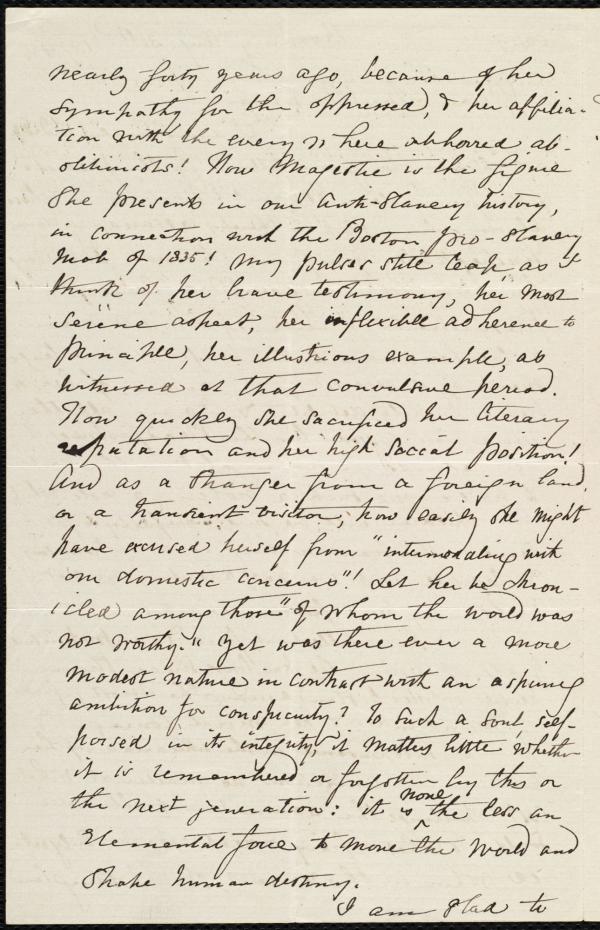 nearly forty years ago, because of her
sympathy for the oppressed, & her affilia-
tion with the every where abhorred ab-
olitionists! How majestic is the figure
she presents in our Anti-Slavery history,
in connection with the Boston pro-slavery
mob of 1835! My pulses still leap, as I
think of her brave testimony, her most
serene aspect, her inflexible adherence to
principle, her illustrious example, as
witnessed at that convulsive period.
How quickly she sacrificed her literary
reputation and her high social position!
And as a stranger from a foreign land,
or a transient visitor, how easily she might
have excused herself from "intermeddling with
our domestic concerns"! Let her be chron-
icled among those "of whom the world was
not worthy." Yet was there ever a more
modest nature in contrast with an aspiring
ambition for conspicuity? To such a soul, self-
poised in its integrity, it matters little whether
it is remembered or forgotten by this or
the next generation: it is none the less an
elemental force to move the world and
shape human destiny.
I am glad to